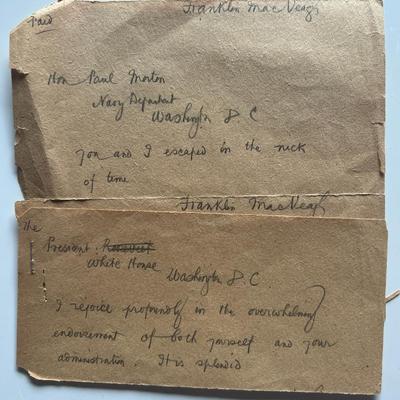 Paid
Franklin MacVeagh
Hon Paul Morton
Navy Department
Washington D C
You and I escaped in the nick
of time
Franklin MacVeagh
The
President Roosevelt
White House
Washington D.C
I rejoice profoundly in the overwhelming
endorsement of both yourself and your
administration. It is splendid